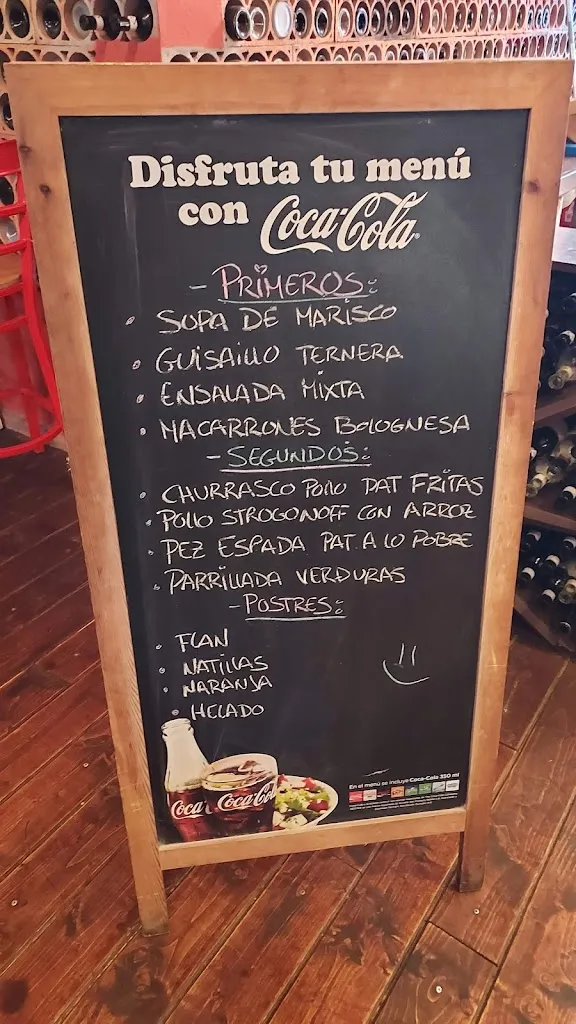 Disfruta tu menú
con Coca-Cola
- PRIMEROS:
• SOPA DE MARISCO
• GUISAILLO TERNERA
• ENSALADA MIXTA
• MACARRONES BOLOGNESA
- SEGUNDOS:
• CHURRASCO POLLO PAT FRITAS
• POLLO STROGONOFF CON ARROZ
• PEZ ESPADA PAT. A LO POBRE
• PARRILLADA VERDURAS
- POSTRES:
• FLAN
• NATILLAS
• NARANJA
• HELADO
Coca-Cola
En el menú se incluye Coca-Cola 350 ml